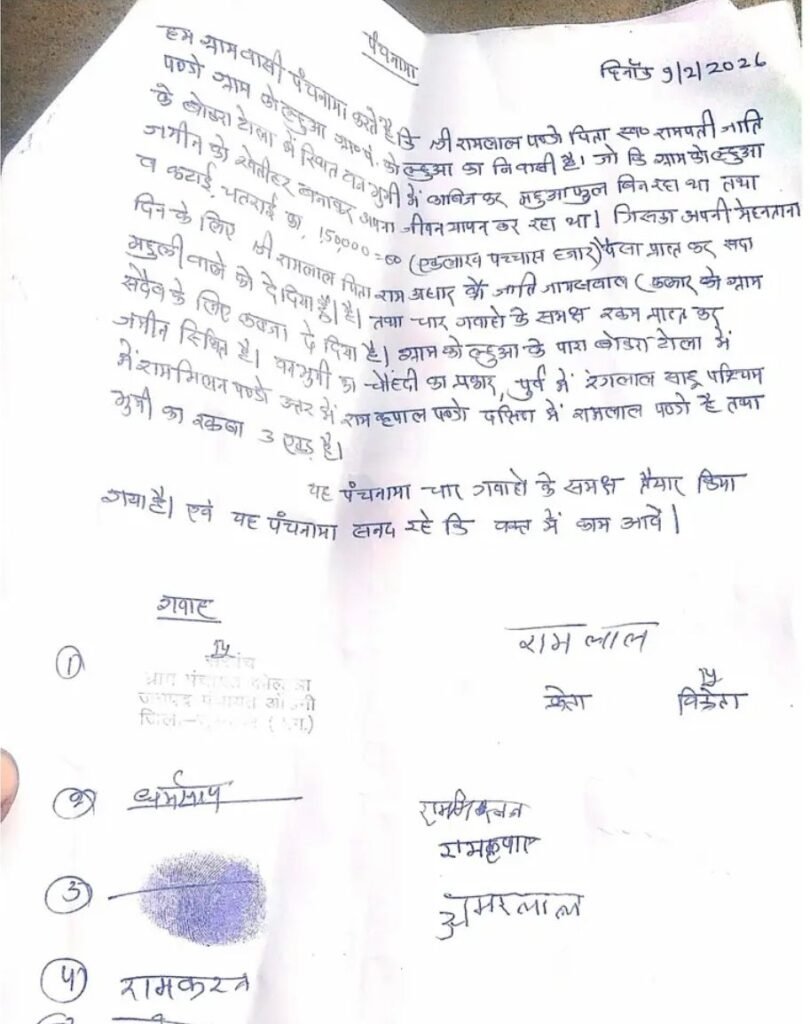 पंचनामा
दिनाँक 9/2/2026
हम ग्रामवासी पंचनामा करते है कि श्री रामलाल पण्डो पिता स्व० रामपती जाति
पण्डो ग्राम कोल्हुआ ग्रा० पं. कोल्हुआ का निवासी है। जो कि ग्राम कोल्हुआ
के बोडरा टोला में स्थित वन भुमी में काबिज कर महुआ फुल बिन रहा था तथा
जमीन को खेतीहर बनाकर अपना जीवन यापन कर रहा था। जिसका अपनी मेहनताना
व कटाई, चतराई का, 150,000=00 (एक लाख पच्चास हजार) पैसा प्राप्त कर सदा
दिन के लिए श्री रामलाल पिता राम अधार जाति जायसवाल
महुली वाले को दे दिया है। तथा चार गवाहो के समक्ष रकम प्राप्त कर
सदैव के लिए कब्जा दे दिया है। ग्राम कोल्हुआ के पारा बोडरा टोला में
जमीन स्थित है। वनभुमी का चौहदी का प्रकार, पुर्व में रंगलाल साहू पश्चिम
में राममिलन पण्डो उत्तर में रामकृपाल पण्डो दक्षिण में रामलाल पण्डो है तथा
भुमी का रकबा 3 एकड़ है।
यह पंचनामा चार गवाहो के समक्ष तैयार किया
गया है। एवं यह पंचनामा सनद रहे कि वक्त में काम आवें।
गवाह
रामलाल
क्रेता विक्रेता
①
सरपंच
ग्राम पंचायत
जनपद पंचायत
जिला
②
राममिलन
रामकृपाल
③
अमरलाल
④ रामकरन